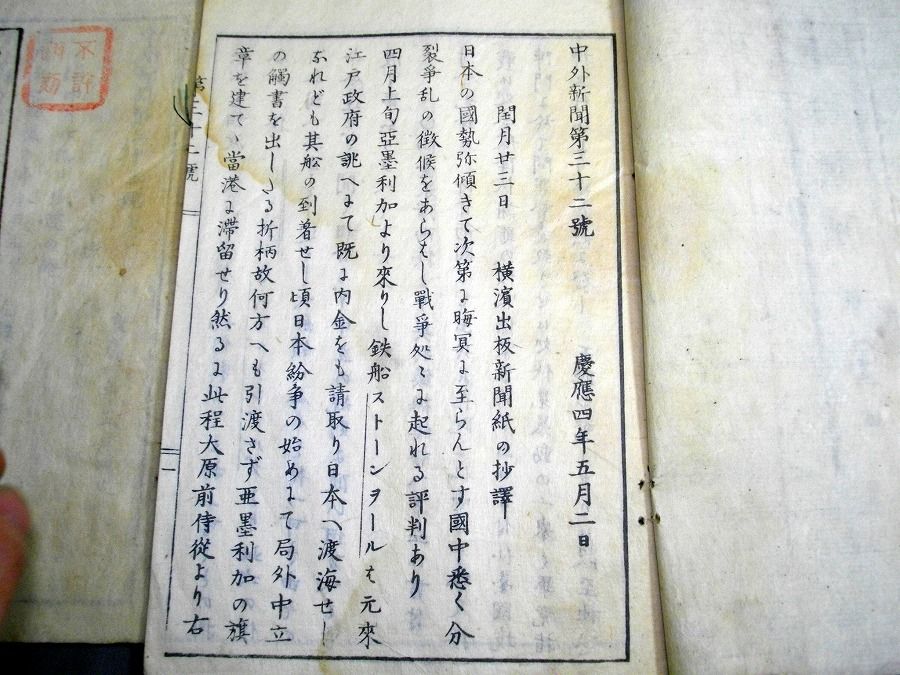 中外新聞第三十二號 慶應四年五月二日
閏月廿三日 横濱出板新聞紙の抄譯
日本の國勢弥傾きて次第に晦冥に至らんとす國中悉く分
裂爭乱の徴候をあらはし戰爭処々に起れる評判あり
四月上旬亞墨利加より來りし鉄船ストーンヲールは元來
江戸政府の誂へにて既に内金をも請取り日本へ渡海せし
なれども其舩の到着せし頃日本紛争の始めにて局外中立
の觸書を出したる折柄故何方へも引渡さず亜墨利加の旗
章を建てゝ當港に滞留せり然るに此程大原前侍從より右
第三十二號
不許